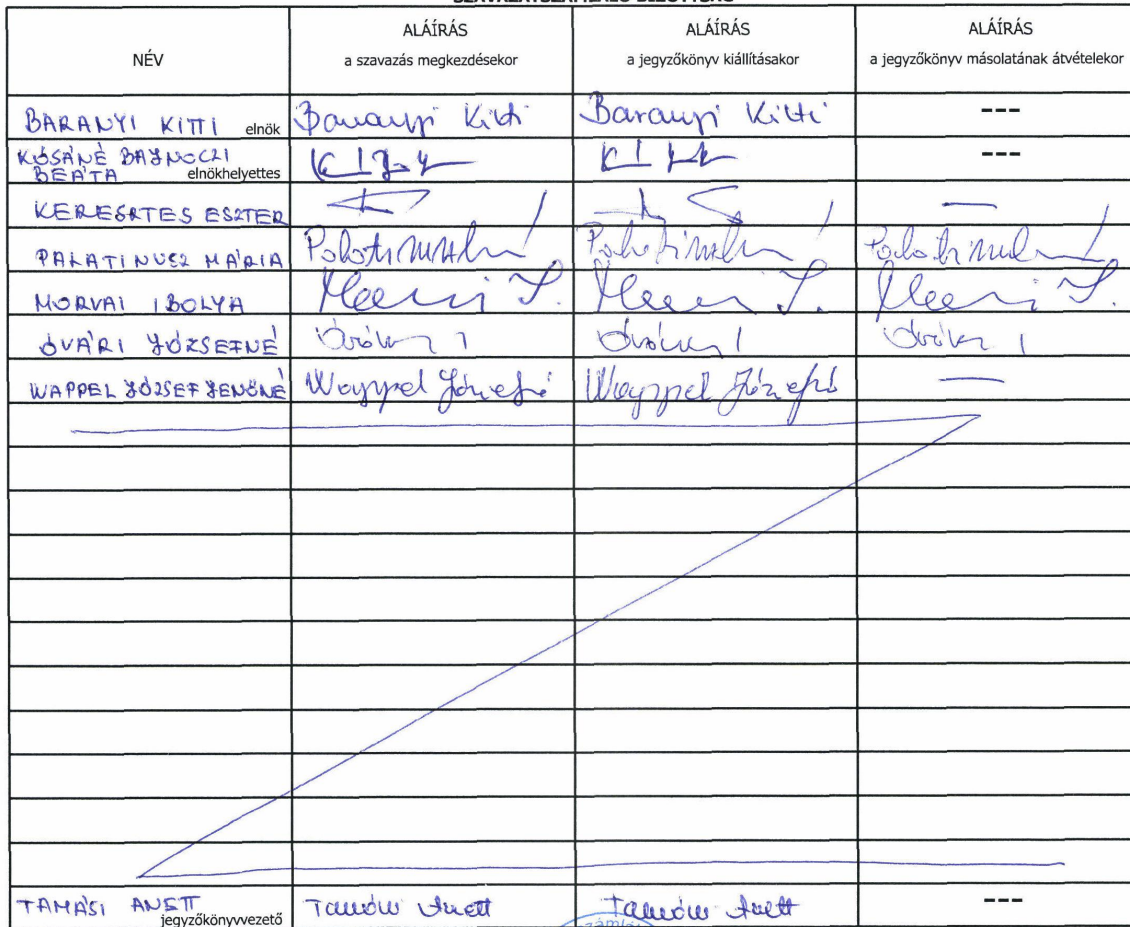 NÉV
ALÁÍRÁS
a szavazás megkezdésekor
ALÁÍRÁS
a jegyzőkönyv kiállításakor
ALÁÍRÁS
a jegyzőkönyv másolatának átvételekor
BARANYI KITTI elnök Baranyi Kitti Baranyi Kitti ---
KÓSÁNÉ BAJNOCZI
BEÁTA elnökhelyettes ---
KERESZTES ESZTER
PALATINUSZ MÁRIA
MORVAI IBOLYA
ÓVÁRI JÓZSEFNÉ
WAPPEL JÓZSEF JENŐNÉ Wappel Józsefné Wappel Józsefné
TAMÁSI ANETT jegyzőkönyvvezető Tamási Anett Tamási Anett ---